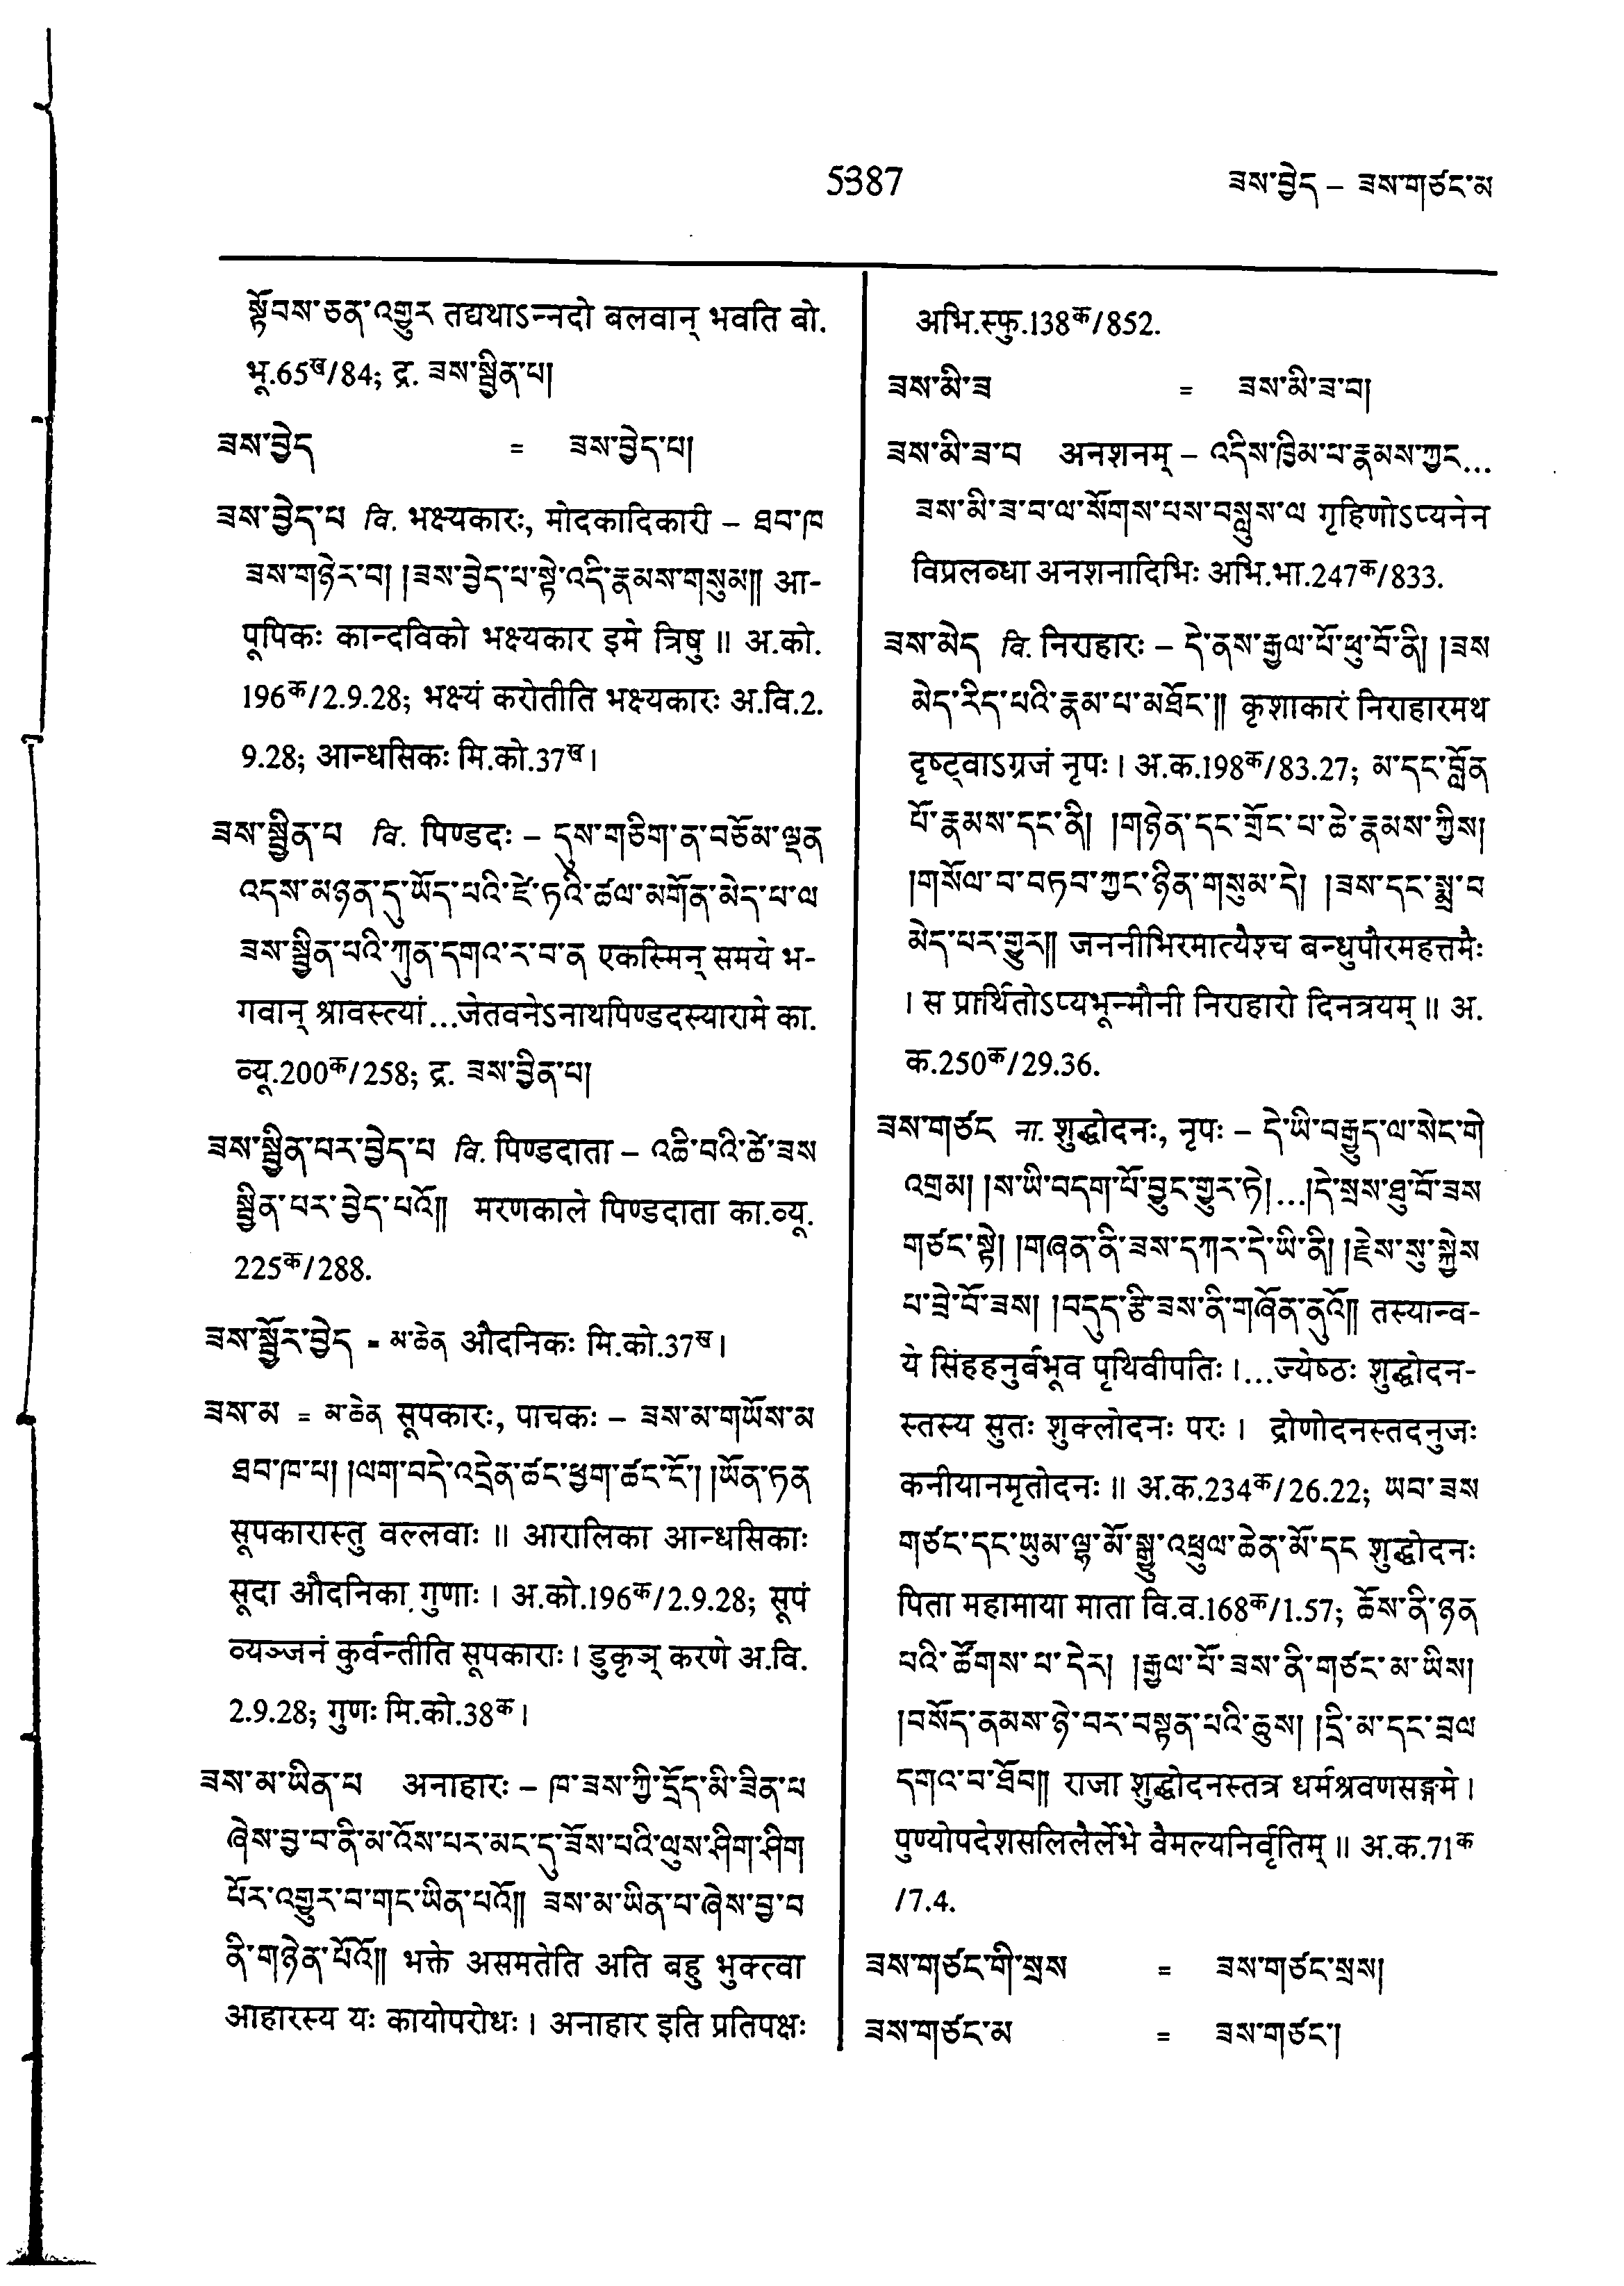 5387
ཟས་བྱེད – ཟས་གཙང་མ
སྟོབས་ཅན་འགྱུར तद्यथाऽन्नदो बलवान् भवति बो.
भू.65ख/84; द्र. ཟས་སྦྱིན་པ།
ཟས་བྱེད = ཟས་བྱེད་པ།
ཟས་བྱེད་པ वि. भक्ष्यकारः, मोदकादिकारी – ཐབ་ཁ
ཟས་གཉེར་བ། །ཟས་བྱེད་པ་སྟེ་འདི་རྣམས་གསུམ༎ आ-
पूपिकः कान्दविको भक्ष्यकार इमे त्रिषु ॥ अ.को.
196क/2.9.28; भक्ष्यं करोतीति भक्ष्यकारः अ.वि.2.
9.28; आन्धसिकः मि.को.37ख।
ཟས་སྦྱིན་པ वि. पिण्डदः – དུས་གཅིག་ན་བཅོམ་ལྡན
འདས་མཉན་དུ་ཡོད་པའི་ཛེ་ཏའི་ཚལ་མགོན་མེད་པ་ལ
ཟས་སྦྱིན་པའི་ཀུན་དགའ་ར་བ་ན एकस्मिन् समये भ-
गवान् श्रावस्त्यां...जेतवनेऽनाथपिण्डदस्यारामे का.
व्यू.200क/258; द्र. ཟས་བྱིན་པ།
ཟས་སྦྱིན་པར་བྱེད་པ वि. पिण्डदाता – འཆི་བའི་ཚེ་ཟས
སྦྱིན་པར་བྱེད་པའོ༎ मरणकाले पिण्डदाता का.व्यू.
225क/288.
ཟས་སྦྱོར་བྱེད = མ་ཆེན औदनिकः मि.को.37ख।
ཟས་མ = མ་ཆེན सूपकारः, पाचकः – ཟས་མ་གཡོས་མ
ཐབ་ཁ་པ། །ལག་བདེ་འདྲེན་ཚང་ཕྱག་ཚང་ངོ་། །ཡོན་ཏན
सूपकारास्तु वल्लवाः ॥ आरालिका आन्धसिकाः
सूदा औदनिका गुणाः । अ.को.196क/2.9.28; सूपं
व्यञ्जनं कुर्वन्तीति सूपकाराः । डुकृञ् करणे अ.वि.
2.9.28; गुणः मि.को.38क।
ཟས་མ་ཡིན་པ अनाहारः – ཁ་ཟས་ཀྱི་དྲོད་མི་ཟིན་པ
ཞེས་བྱ་བ་ནི་མ་འོས་པར་མང་དུ་ཟོས་པའི་ལུས་ཤིག་ཤིག
པོར་འགྱུར་བ་གང་ཡིན་པའོ༎ ཟས་མ་ཡིན་པ་ཞེས་བྱ་བ
ནི་གཉེན་པོའོ༎ भक्ते असमतेति अति बहु भुक्त्वा
आहारस्य यः कायोपरोधः । अनाहार इति प्रतिपक्षः
अभि.स्फु.138क/852.
ཟས་མི་ཟ = ཟས་མི་ཟ་བ།
ཟས་མི་ཟ་བ अनशनम् – འདིས་ཁྱིམ་པ་རྣམས་ཀྱང...
ཟས་མི་ཟ་བ་ལ་སོགས་པས་བསླུས་ལ गृहिणोऽप्यनेन
विप्रलब्धा अनशनादिभिः अभि.भा.247क/833.
ཟས་མེད वि. निराहारः – དེ་ནས་རྒྱལ་པོ་ཕུ་བོ་ནི། །ཟས
མེད་རིད་པའི་རྣམ་པ་མཐོང་༎ कृशाकारं निराहारमथ
दृष्ट्वाऽग्रजं नृपः । अ.क.198क/83.27; མ་དང་བློན
པོ་རྣམས་དང་ནི། །གཉེན་དང་གྲོང་པ་ཆེ་རྣམས་ཀྱིས།
།གསོལ་བ་བཏབ་ཀྱང་ཉིན་གསུམ་དེ། །ཟས་དང་སྨྲ་བ
མེད་པར་གྱུར༎ जननीभिरमात्यैश्च बन्धुपौरमहत्तमैः
। स प्रार्थितोऽप्यभून्मौनी निराहारो दिनत्रयम् ॥ अ.
क.250क/29.36.
ཟས་གཙང ना. शुद्धोदनः, नृपः – དེ་ཡི་བརྒྱུད་ལ་སེང་གེ
འགྲམ། །ས་ཡི་བདག་པོ་བྱུང་གྱུར་ཏེ།...།དེ་སྲས་ཐུ་བོ་ཟས
གཙང་སྟེ། །གཞན་ནི་ཟས་དཀར་དེ་ཡི་ནི། །རྗེས་སུ་སྐྱེས
པ་བྲེ་བོ་ཟས། །བདུད་རྩི་ཟས་ནི་གཞོན་ནུའོ༎ तस्यान्व-
ये सिंहहनुर्बभूव पृथिवीपतिः ।...ज्येष्ठः शुद्धोदन-
स्तस्य सुतः शुक्लोदनः परः । द्रोणोदनस्तदनुजः
कनीयानमृतोदनः ॥ अ.क.234क/26.22; ཡབ་ཟས
གཙང་དང་ཡུམ་ལྷ་མོ་སྒྱུ་འཕྲུལ་ཆེན་མོ་དང शुद्धोदनः
पिता महामाया माता वि.व.168क/1.57; ཆོས་ནི་ཉན
པའི་ཚོགས་པ་དེར། །རྒྱལ་པོ་ཟས་ནི་གཙང་མ་ཡིས།
།བསོད་ནམས་ཉེ་བར་བསྟན་པའི་ཆུས། །དྲི་མ་དང་བྲལ
དགའ་བ་ཐོབ༎ राजा शुद्धोदनस्तत्र धर्मश्रवणसङ्गमे ।
पुण्योपदेशसलिलैर्लेभे वैमल्यनिर्वृतिम् ॥ अ.क.71क
/7.4.
ཟས་གཙང་གི་སྲས = ཟས་གཙང་སྲས།
ཟས་གཙང་མ = ཟས་གཙང་།